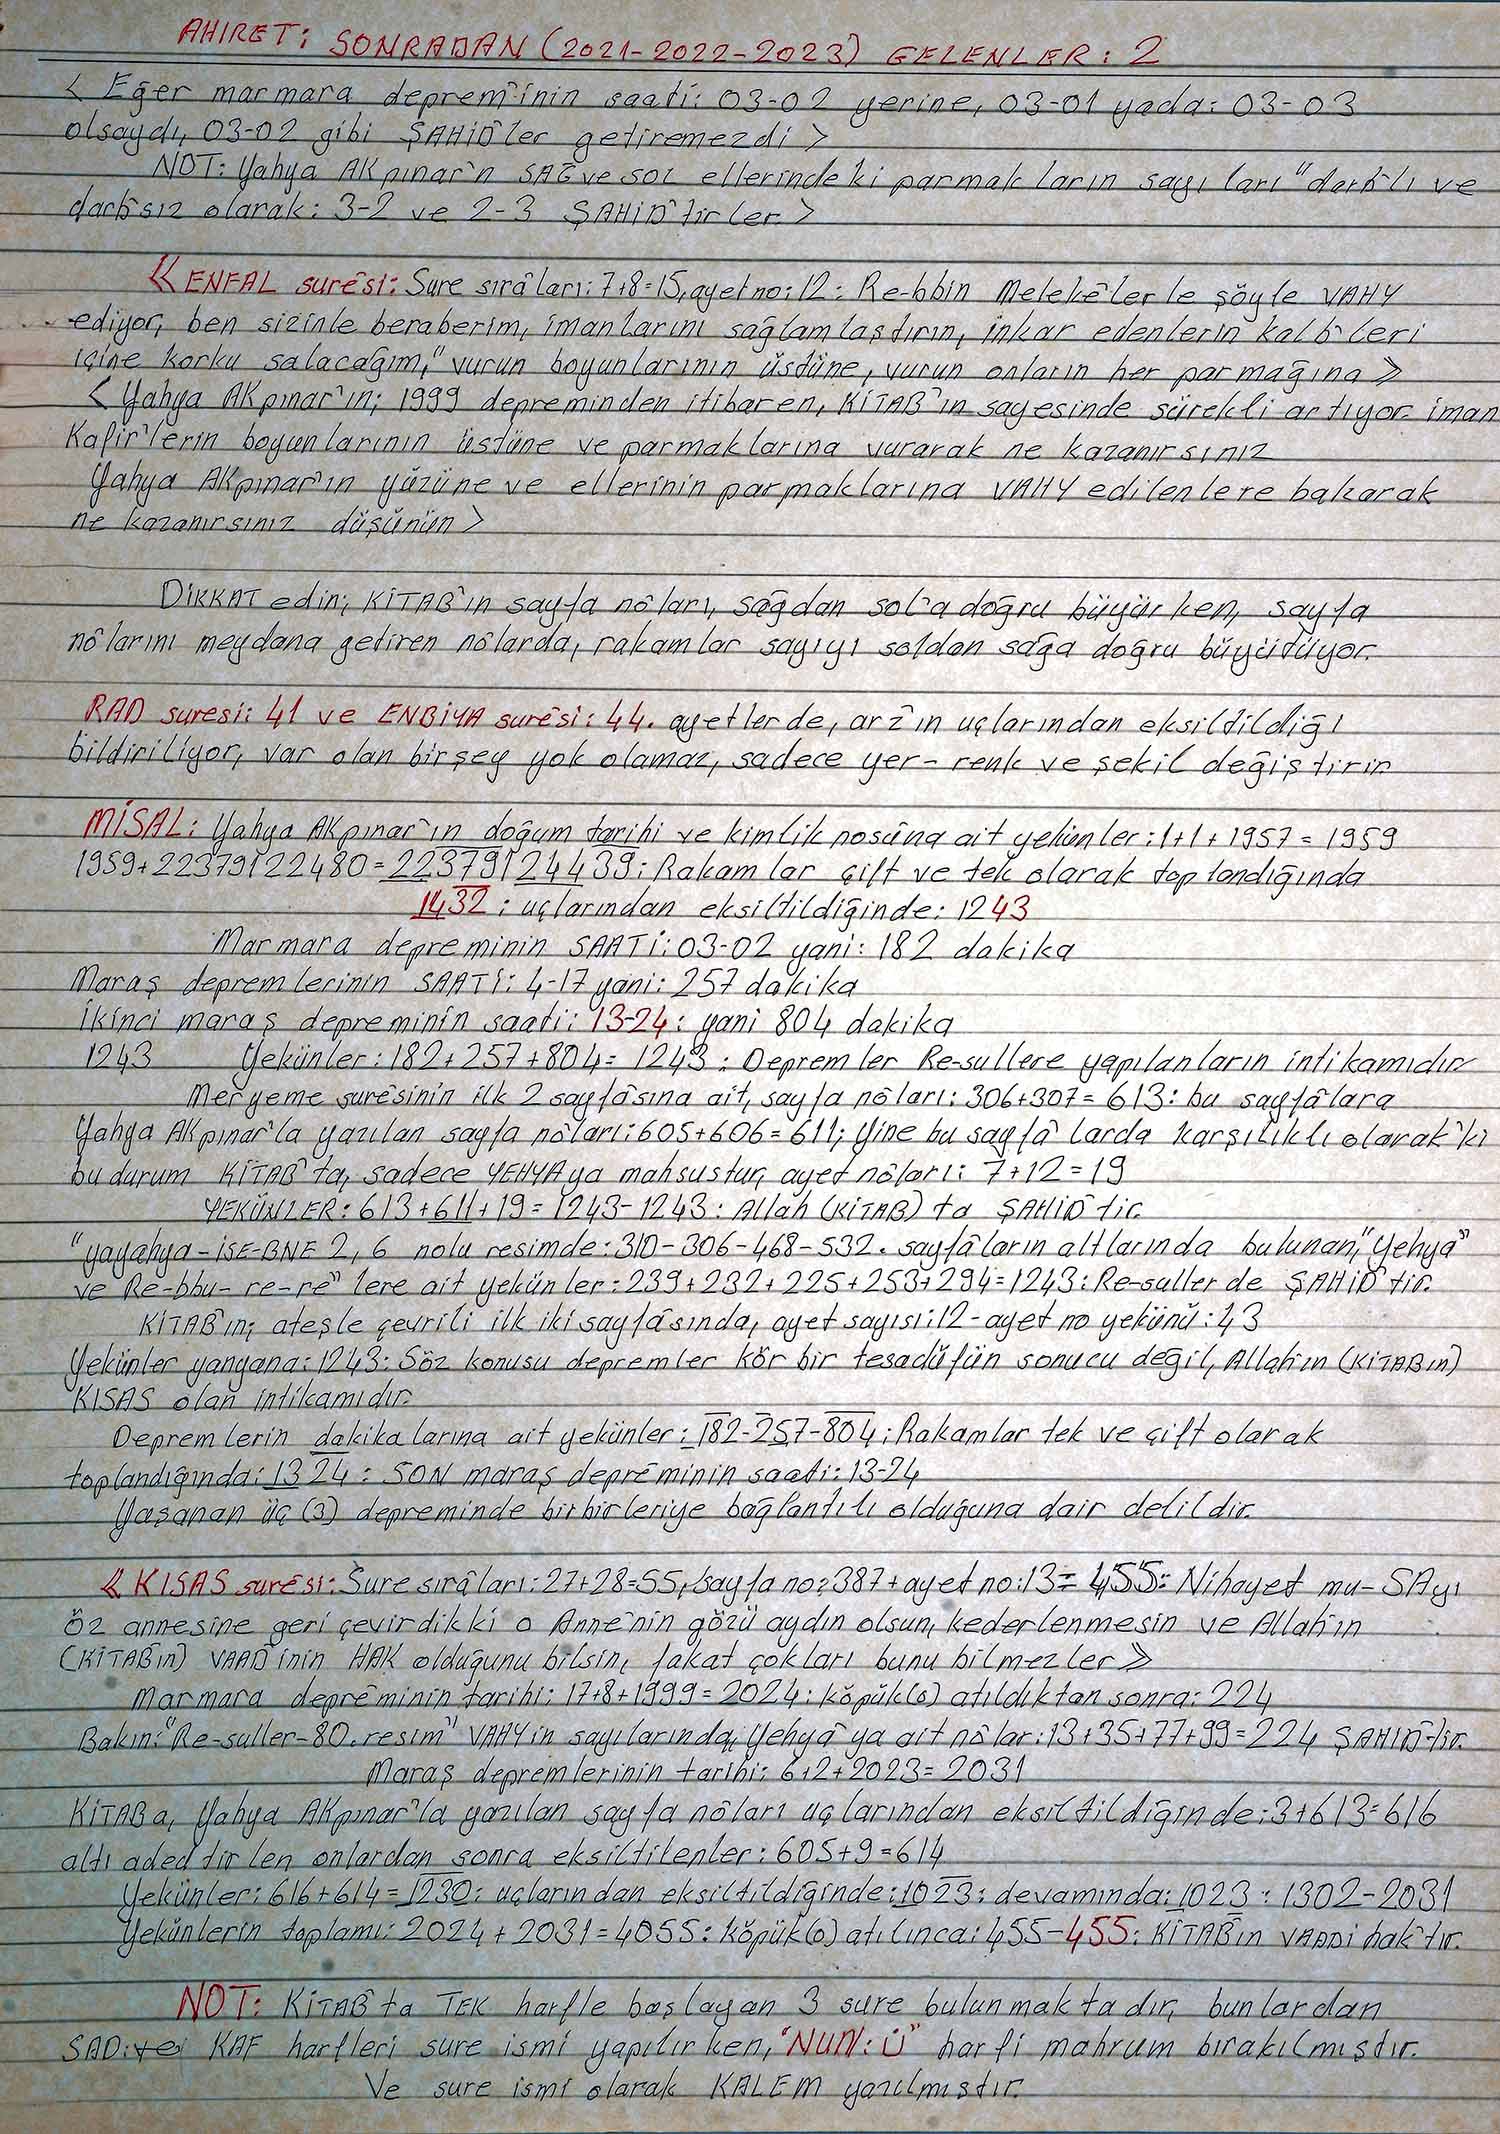 AHIRET: SONRADAN (2021-2022-2023) GELENLER: 2
< Eğer marmara deprem'inin saati: 03-02 yerine, 03-01 yada: 03-03
olsaydı, 03-02 gibi ŞAHİD'ler getiremezdi >
NOT: Yahya AKpınar'n SAĞ ve SOL ellerindeki parmakların sayıları "darb'lı ve
darb'sız olarak: 3-2 ve 2-3 ŞAHİD'tirler. >
≪ ENFAL suresi: Sure sıraları: 7+8=15, ayet no: 12: Re-bbin Melekelerle şöyle VAHY
ediyor, ben sizinle beraberim, imanlarını sağlamlaştırın, inkar edenlerin kalb'leri
içine korku salacağım, "vurun boyunlarının üstüne, vurun onların her parmağına ≫
< Yahya AKpınar'ın; 1999 depreminden itibaren, KİTAB'ın sayesinde sürekli artıyor iman
Kafir'lerin boyunlarının üstüne ve parmaklarına vurarak ne kazanırsınız
Yahya AKpınar'ın yüzüne ve ellerinin parmaklarına VAHY edilenlere bakarak
ne kazanırsınız düşünün >
DİKKAT edin; KİTAB'ın sayfa nôları, sağdan sol'a doğru büyürken, sayfa
nôlarını meydana getiren nôlarda, rakamlar sayıyı soldan sağa doğru büyütüyor.
RAD suresi: 41 ve ENBİYA suresi: 44. ayetlerde, arz'ın uçlarından eksiltildiği
bildiriliyor, var olan birşey yok olamaz, sadece yer-renk ve şekil değiştirir
MİSAL: Yahya AKpınar'ın doğum tarihi ve kimlik nosuna ait yekünler: 1+1+1957=1959
1959+22379122480=22379124439: Rakamlar çift ve tek olarak toplandığında
1432: uçlarından eksiltildiğinde: 1243
Marmara depreminin SAATİ: 03-02 yani: 182 dakika
Maraş depremlerinin SAATİ: 4-17 yani: 257 dakika
İkinci maraş depreminin saati: 13-24: yani 804 dakika
1243 Yekünler: 182+257+804=1243: Depremler Re-sullere yapılanların intikamıdır
Meryeme suresinin ilk 2 sayfasına ait, sayfa nôları: 306+307=613: bu sayfalara
Yahya AKpınar'la yazılan sayfa nôları: 605+606=611; Yine bu sayfalarda karşılıklı olarak'ki
bu durum KİTAB'ta, sadece YEHYAya mahsustur, ayet nôları: 7+12=19
YEKÜNLER: 613+611+19=1243-1243: Allah (KİTAB) ta ŞAHİD'tir.
"yayahya-İSE-BNE 2, 6 nolu resimde: 310-306-468-532. sayfaların altlarında bulunan, "Yehya"
ve Re-bbu-re-re" lere ait yekünler: 239+232+225+253+294=1243: Re-suller de ŞAHİD'tir.
KİTAB'ın; ateşle çevrili ilk iki sayfasında, ayet sayısı: 12-ayet no yekünü: 43
Yekünler yanyana: 1243: Söz konusu depremler kör bir tesadüfün sonucu değil, Allah'ın (KİTABın)
KISAS olan intikamıdır.
Depremlerin dakikalarına ait yekünler: 182-257-804: Rakamlar tek ve çift olarak
toplandığında: 1324: SON maraş depreminin saati: 13-24
Yaşanan üç (3) depreminde birbirleriye bağlantılı olduğuna dair delildir.
≪ KISAS suresi: Sure sıraları: 27+28=55, sayfa no: 387+ayet no: 13= 455: Nihayet mu-SAyı
öz annesine geri çevirdikki o Anne'nin gözü aydın olsun, kederlenmesin ve Allah'ın
(KİTABın) VAAD'inin HAK olduğunu bilsin, fakat çokları bunu bilmezler ≫
Marmara depreminin tarihi: 17+8+1999=2024: köpük(0) atıldıktan sonra: 224
Bakın: "Re-suller-80. resim" VAHYin sayılarında, Yehya'ya ait nôlar: 13+35+77+99=224 ŞAHİD'tir.
Maraş depremlerinin tarihi: 6+2+2023=2031
KİTABa, Yahya AKpınar'la yazılan sayfa nôları uçlarından eksiltildiğinde: 3+613=616
altı adedtirler, onlardan sonra eksiltilenler: 605+9=614
Yekünler: 616+614=1230: uçlarından eksiltildiğinde: 1023: devamında: 1023: 1302-2031
Yekünlerin toplamı: 2024+2031=4055: köpük(0) atılınca: 455-455: KİTAB'ın VAADi hak'tır.
NOT: KİTAB'ta TEK harfle başlayan 3 sure bulunmaktadır, bunlardan
SAD: ve KAF harfleri sure ismi yapılırken, "NUN: Ù" harfi mahrum bırakılmıştır.
Ve sure ismi olarak KALEM yazılmıştır.